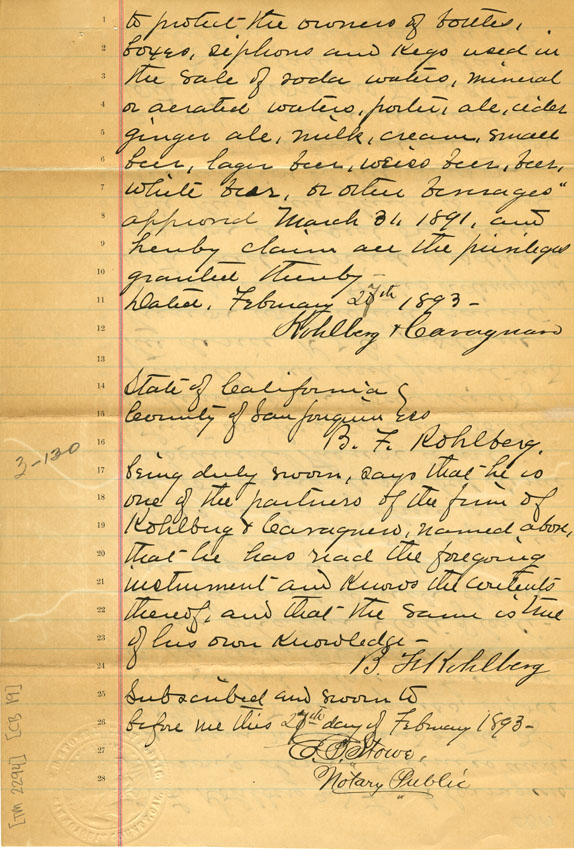 1 to protect the owners of bottles,
2 boxes, siphons and kegs used in
3 the sale of soda waters, mineral
4 or aerated waters, porter, ale, cider
5 ginger ale, milk, cream, small
6 beer, lager beer, weiss beer, beer,
7 white beer, or other beverages"
8 approved March 31, 1891, and
9 hereby claim all the privileges
10 granted thereby -
11 Dated, February 27th 1893 -
12 Kohlberg & Cavagnaro
13
14 State of California
15 County of San Joaquin ss
16 B. F. Kohlberg,
3-130
17 being duly sworn, says that he is
18 one of the partners of the firm of
19 Kohlberg & Cavagnero, named above,
20 that he has read the foregoing
21 instrument and knows the contents
22 thereof, and that the same is true
23 of his own knowledge -
24 B. F. Kohlberg
25 Subscribed and sworn to
26 before me this 27th day of February 1893 -
27 Stowe,
28 Notary Public
[TM 2294] [CB 19]